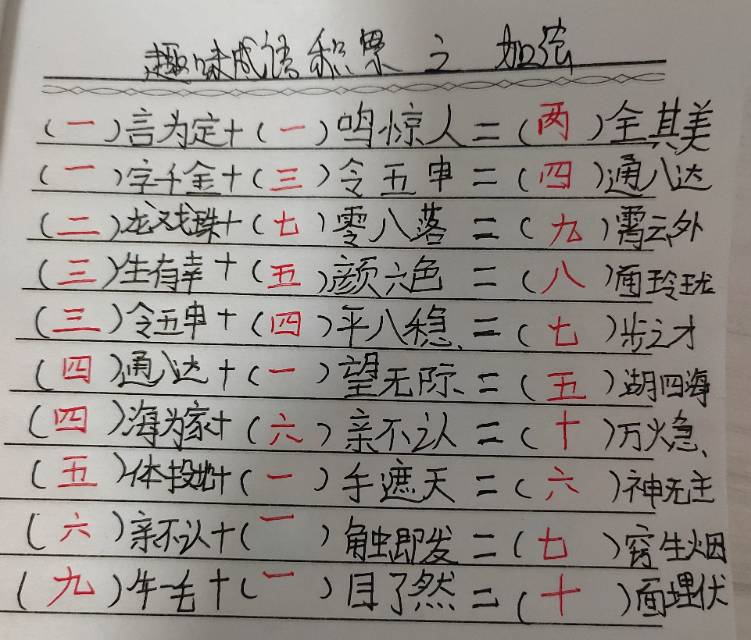 趣味成语积累之加法
(一)言为定+(一)鸣惊人=(两)全其美
(一)字千金+(三)令五申=(四)通八达
(二)龙戏珠+(七)零八落=(九)霄云外
(三)生有幸+(五)颜六色=(八)面玲珑
(三)令五申+(四)平八稳=(七)步之才
(四)通八达+(一)望无际=(五)湖四海
(四)海为家+(六)亲不认=(十)万火急
(五)体投地+(一)手遮天=(六)神无主
(六)亲不认+(一)触即发=(七)窍生烟
(九)牛一毛+(一)目了然=(十)面埋伏